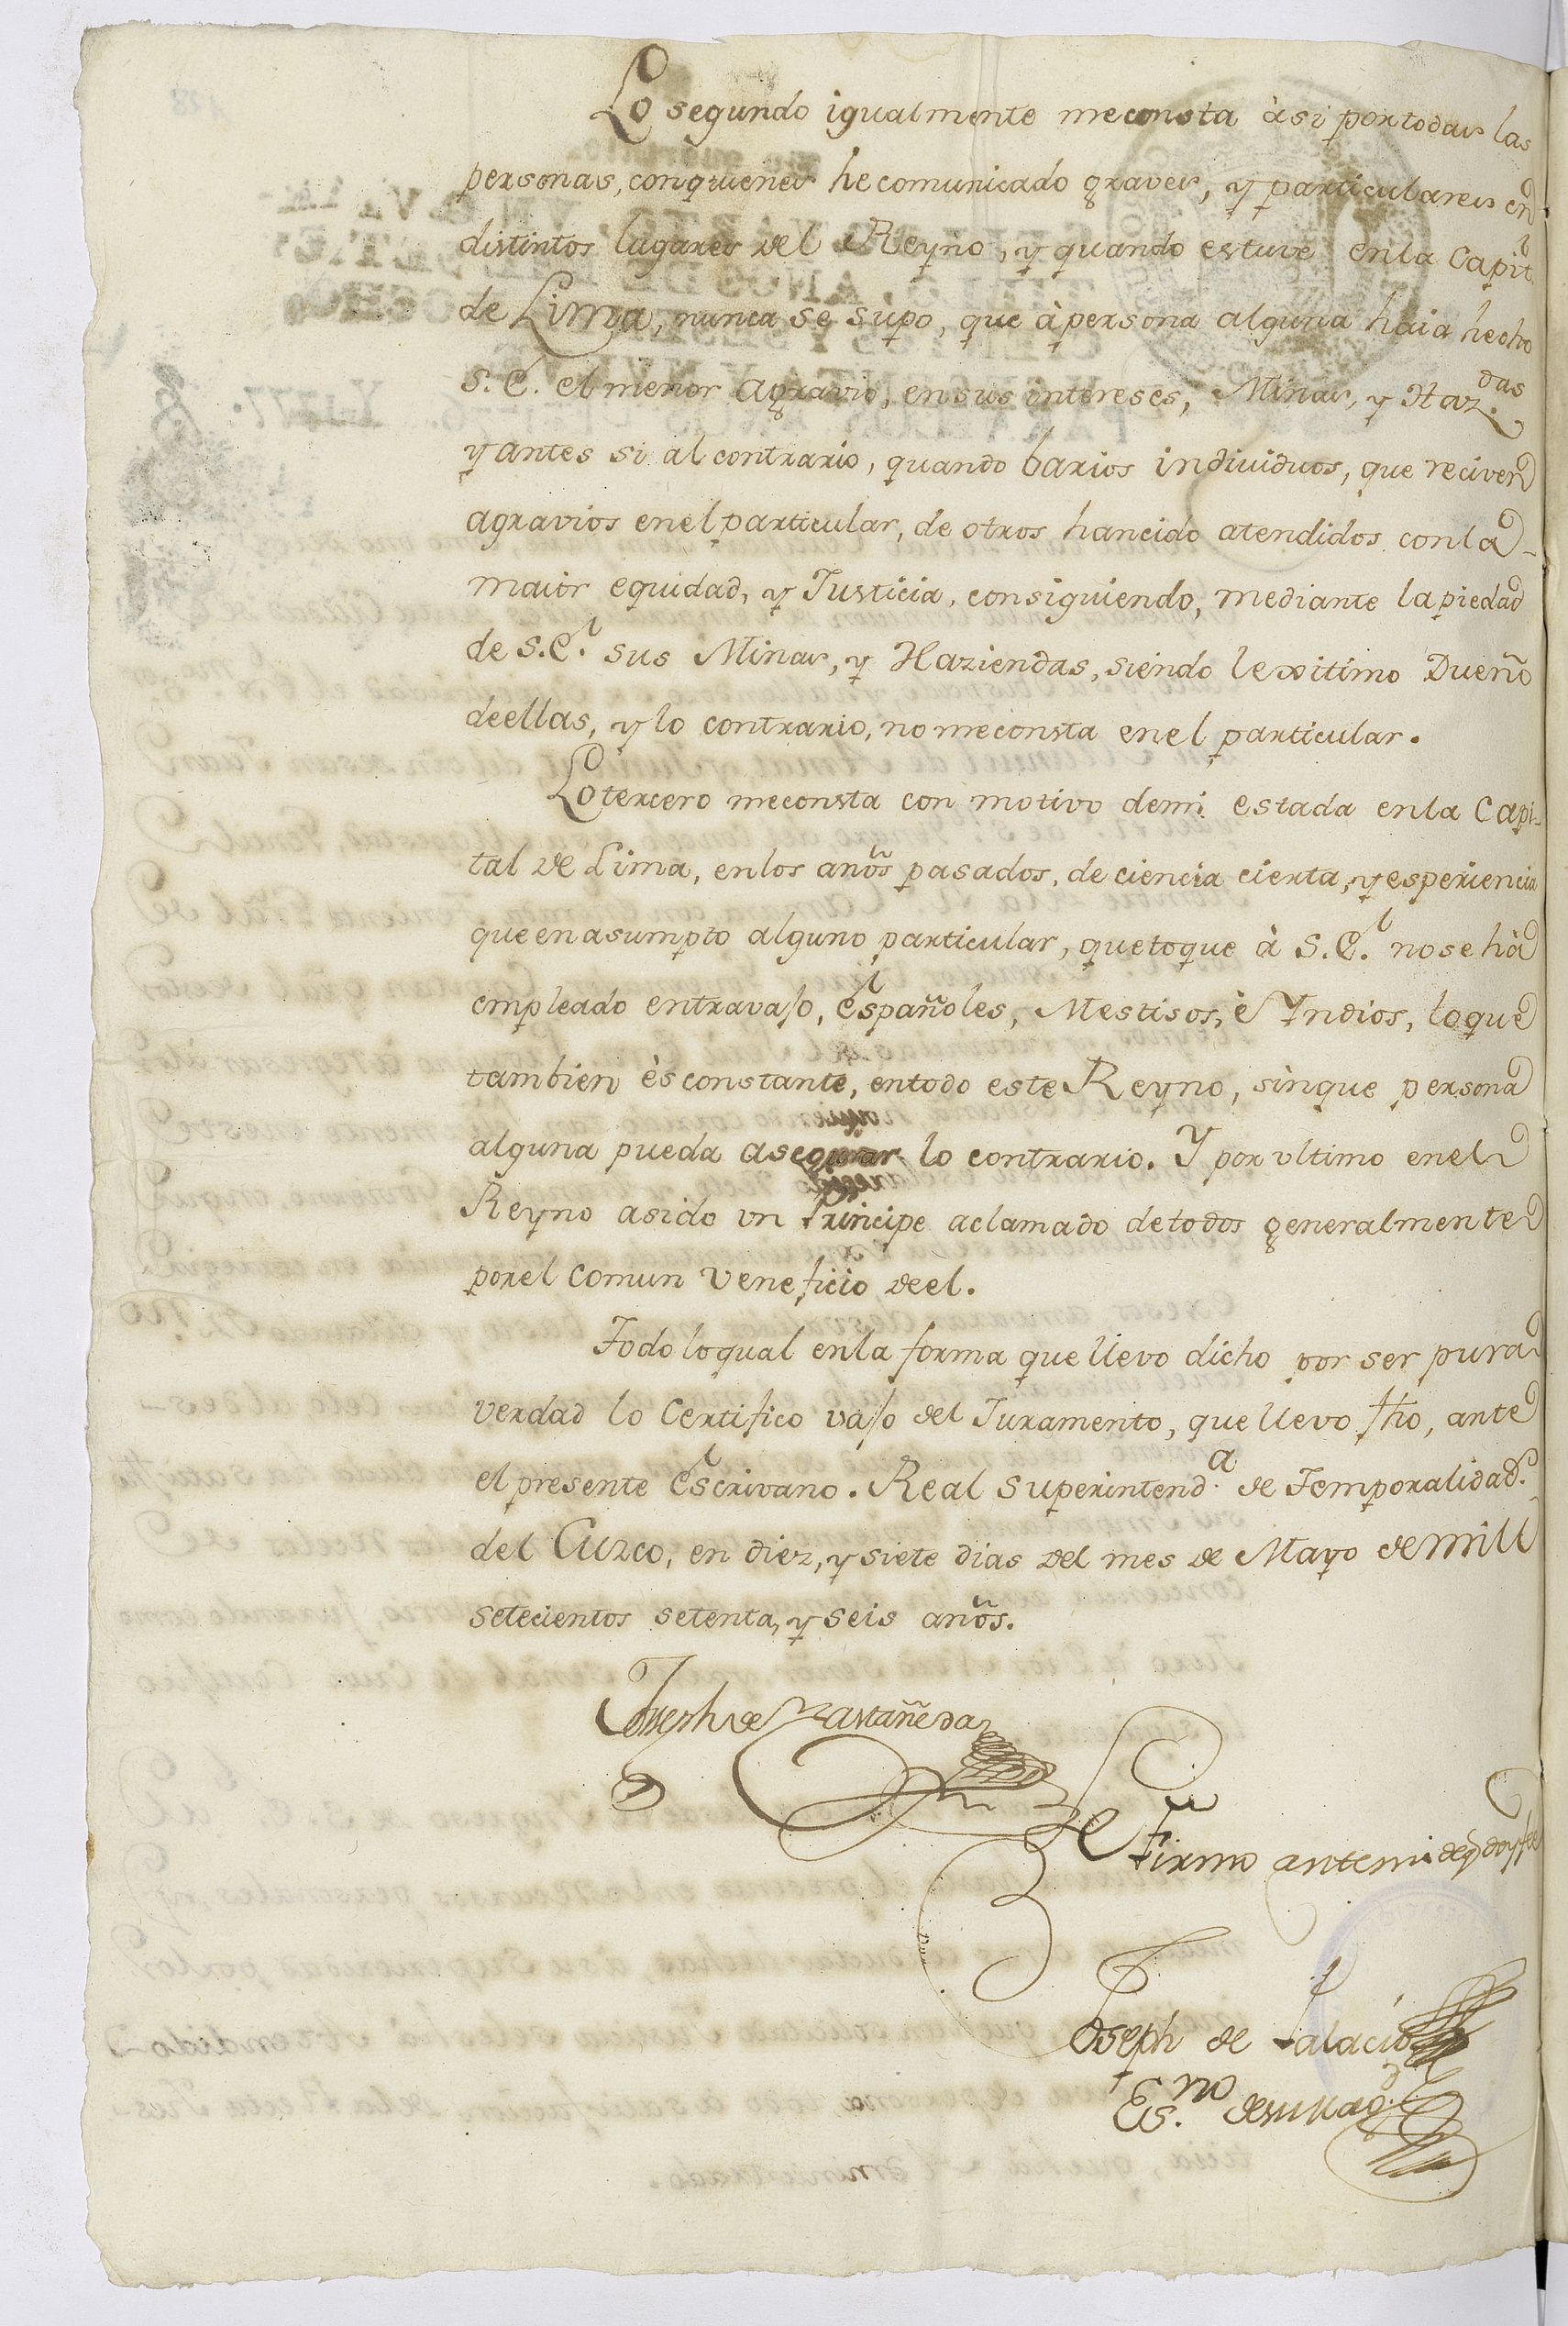 Lo segundo igualmente meconsta àsi portodas las
personas, conquienes he comunicado graves, y particulares en
distintos lugares del Reyno, y quando estuve enla Capit.l
de Lima, nunca se supo, que àpersona alguna haia hecho
S. E. el menor agravio, ensus intereses, Minas, y Haz.das
y antes si al contrario, quando barios individuos, que reciven
agravios enel particular, de otros hancido atendidos conla
maior equidad, y Justicia, consiguiendo, mediante lapiedad
de S.E. sus Minas, y Haziendas, siendo lexitimo Dueño
deellas, y lo contrario, no meconsta enel particular.
Lotercero meconsta con motivo demi estada enla Capi-
tal de Lima, enlos años pasados, de ciencia cierta, y esperiencia
que enasumpto alguno particular, quetoque à S.E. nose hà
empleado entravajo, Españoles, Mestisos, è Yndios, loque
tambien ès constante, entodo este Reyno, sinque persona
alguna pueda asegurar lo contrario. Y por ultimo enel
Reyno asido un Principe aclamado detodos generalmente
porel comun veneficio deel.
Todo loqual enla forma que llevo dicho por ser pura
verdad lo Certifico vajo del Juramento, que llevo fho, ante
el presente Escrivano. Real Superintend.a de Temporalidad.s
del Cuzco, en diez, y siete dias del mes de Mayo de mill
setecientos setenta, y seis años.
Joseph de Castañeda
Firmo antemi deq doy fee
Joseph de Palacios
Es.no de su Mag.d